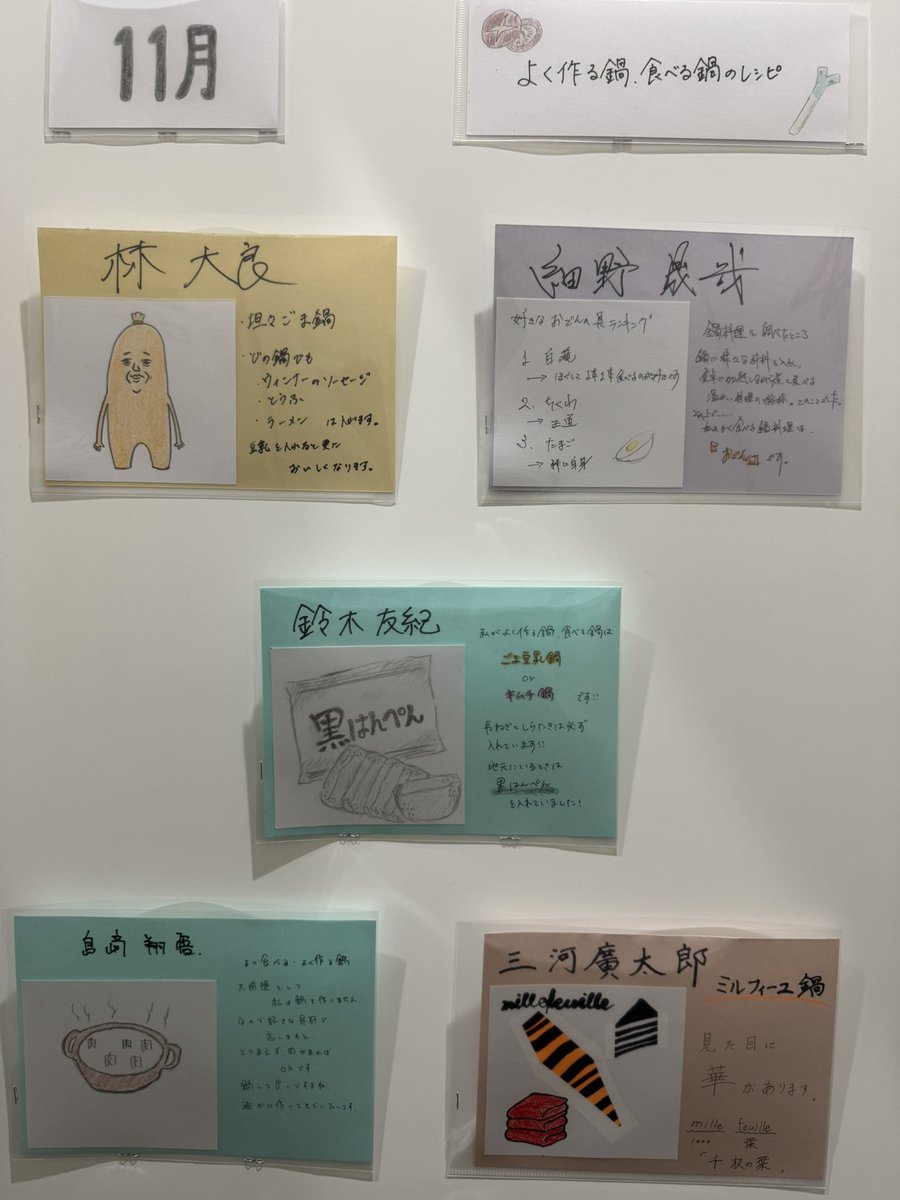 11月
よく作る鍋、食べる鍋のレシピ
林 大良
・坦々ごま鍋
・どの鍋にも
・ウィンナーのソーセージ
・とうふ
・ラーメン は入れます。
豆乳を入れると更に
おいしくなります。
細野 晟哉
好きなおでんの具ランキング
1. 白滝
2. ちくわ
→ 王道
3. たまご
鍋料理を調べたところ
鍋に様々な材料を入れ、
私のよく食べる鍋料理は、
『おでん』です。
鈴木 友紀
黒はんぺん
私がよく作る鍋、食べる鍋は
ごま豆乳鍋
or
キムチ鍋 です!!
長ねぎとしらたきは必ず
入れています!!
地元にいるときは
黒はんぺん
を入れていました!
島﨑 翔
肉 肉 肉
肉 肉
よく食べる・よく作る鍋
大前提として
私は鍋を作りません。
なので好きな具材で
とりあえず、肉があれば
okです
誰かに作ってもらいたいです。
三河廣太郎
ミルフィーユ鍋
millefeuille
見た目に
華があります。
mille feuille
1000 葉
「千枚の葉」